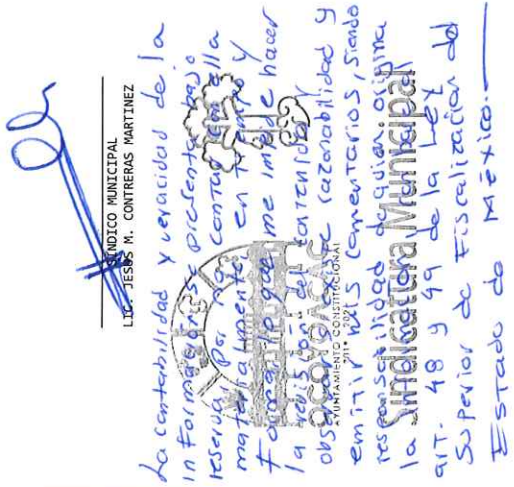 SINDICO MUNICIPAL
LIC. JESUS M. CONTRERAS MARTINEZ
La contabilidad y veracidad de la
información se presenta bajo
reserva, Por no contar con ella
materialmente en tiempo y
forma, lo que me impide hacer
la revisión del contenido y
observar si existe razonabilidad y
emitir mis comentarios, siendo
responsabilidad de quien origina
la
art. 48 y 49 de la Ley
Superior de Fiscalización del
Estado de México.
OCOYOACAC
AYUNTAMIENTO CONSTITUCIONAL
Sindicatura Municipal